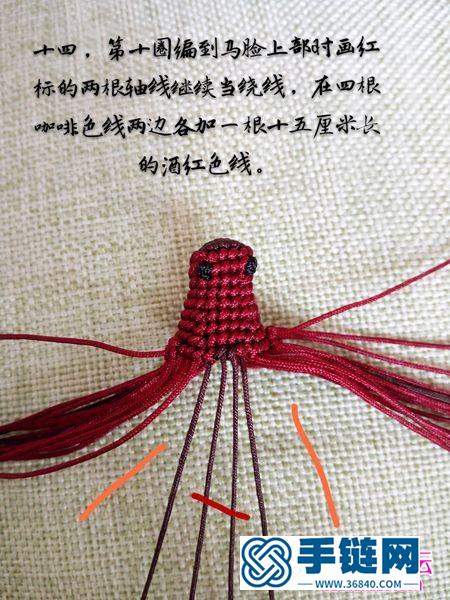 十四，第十圈编到马脸上部时画红
标的两根轴线继续当绕线，在四根
咖啡色线两边各加一根十五厘米长
的酒红色线。
手链网
WWW.36840.COM